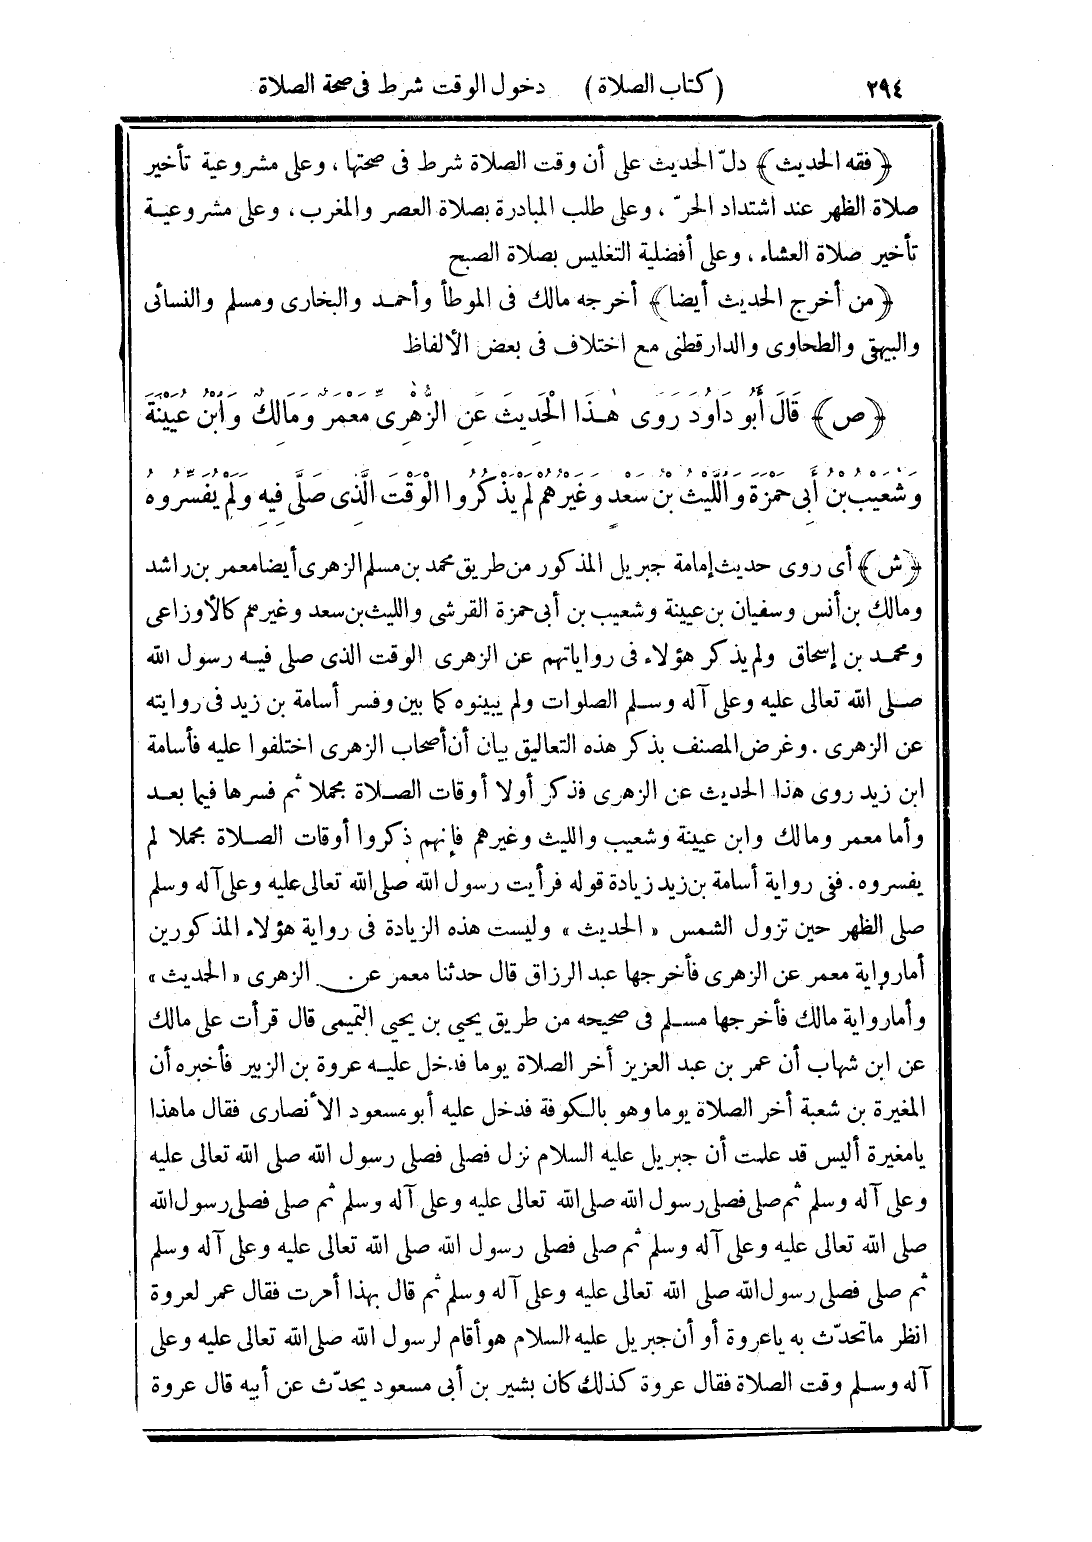 ٢٩٤ (كتاب الصلاة) دخول الوقت شرط فى صحة الصلاة
﴿فقه الحديث﴾ دلّ الحديث على أن وقت الصلاة شرط فى صحتها، وعلى مشروعية تأخير
صلاة الظهر عند اشتداد الحرّ، وعلى طلب المبادرة بصلاة العصر والمغرب، وعلى مشروعية
تأخير صلاة العشاء، وعلى أفضلية التغليس بصلاة الصبح
﴿من أخرج الحديث أيضا﴾ أخرجه مالك فى الموطأ وأحمد والبخارى ومسلم والنسائى
والبيهقى والطحاوى والدارقطنى مع اختلاف فى بعض الألفاظ
﴿ص﴾ قَالَ أَبُو دَاوُدَ رَوَى هٰذَا الْحَدِيثَ عَنِ الزُّهْرِىِّ مَعْمَرٌ وَمَالِكٌ وَابْنُ عُيَيْنَةَ
وَشُعَيْبُ بْنُ أَبِى حَمْزَةَ وَاللَّيْثُ بْنُ سَعْدٍ وَغَيْرُهُمْ لَمْ يَذْكُرُوا الْوَقْتَ الَّذِى صَلَّى فِيهِ وَلَمْ يُفَسِّرُوهُ
﴿ش﴾ أى روى حديث إمامة جبريل المذكور من طريق محمد بن مسلم الزهرى أيضا معمر بن راشد
ومالك بن أنس وسفيان بن عيينة وشعيب بن أبى حمزة القرشى والليث بن سعد وغيرهم كالأوزاعى
ومحمد بن إسحاق ولم يذكر هؤلاء فى رواياتهم عن الزهرى الوقت الذى صلى فيه رسول الله
صلى الله تعالى عليه وعلى آله وسلم الصلوات ولم يبينوه كما بين وفسر أسامة بن زيد فى روايته
عن الزهرى. وغرض المصنف بذكر هذه التعاليق بيان أن أصحاب الزهرى اختلفوا عليه فأسامة
ابن زيد روى هذا الحديث عن الزهرى فذكر أولا أوقات الصلاة مجملا ثم فسرها فيما بعد
وأما معمر ومالك وابن عيينة وشعيب والليث وغيرهم فإنهم ذكروا أوقات الصلاة مجملا لم
يفسروه. ففى رواية أسامة بن زيد زيادة قوله فرأيت رسول الله صلى الله تعالى عليه وعلى آله وسلم
صلى الظهر حين تزول الشمس «الحديث» وليست هذه الزيادة فى رواية هؤلاء المذكورين
أما رواية معمر عن الزهرى فأخرجها عبد الرزاق قال حدثنا معمر عن الزهرى «الحديث»
وأما رواية مالك فأخرجها مسلم فى صحيحه من طريق يحيى بن يحيى التميمى قال قرأت على مالك
عن ابن شهاب أن عمر بن عبد العزيز أخر الصلاة يوما فدخل عليه عروة بن الزبير فأخبره أن
المغيرة بن شعبة أخر الصلاة يوما وهو بالكوفة فدخل عليه أبو مسعود الأنصارى فقال ماهذا
يامغيرة أليس قد علمت أن جبريل عليه السلام نزل فصلى فصلى رسول الله صلى الله تعالى عليه
وعلى آله وسلم ثم صلى فصلى رسول الله صلى الله تعالى عليه وعلى آله وسلم ثم صلى فصلى رسول الله
صلى الله تعالى عليه وعلى آله وسلم ثم صلى فصلى رسول الله صلى الله تعالى عليه وعلى آله وسلم
ثم صلى فصلى رسول الله صلى الله تعالى عليه وعلى آله وسلم ثم قال بهذا أمرت فقال عمر لعروة
انظر ماتحدّث به ياعروة أو أن جبريل عليه السلام هو أقام لرسول الله صلى الله تعالى عليه وعلى
آله وسلم وقت الصلاة فقال عروة كذلك كان بشير بن أبى مسعود يحدّث عن أبيه قال عروة